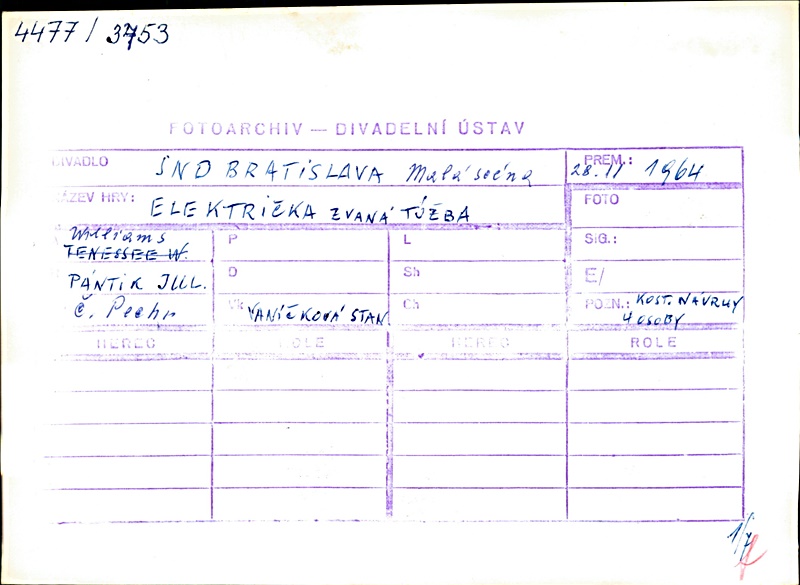 4477 / 3753
FOTOARCHIV — DIVADELNÍ ÚSTAV
DIVADLO SND BRATISLAVA Malá scéna PREM.: 28. 11 1964
NÁZEV HRY: ELEKTRIČKA ZVANÁ TÚŽBA FOTO
Williams P L SIG.:
TENESSEE W.
PÁNTIK JUL. D Sh E/
Č. Pechr Vk VANÍČKOVÁ STAN Ch POZN.: KOST. NÁVRHY
4 OSOBY
HEREC ROLE HEREC ROLE
1/7